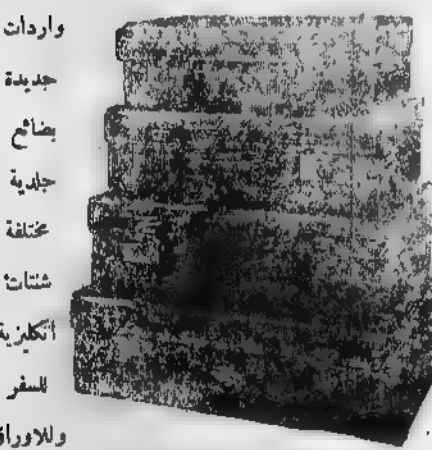 واردات
جديدة
بضائع
جلدية
مختلفة
شنتات
انكليزية
للسفر
وللاوراق